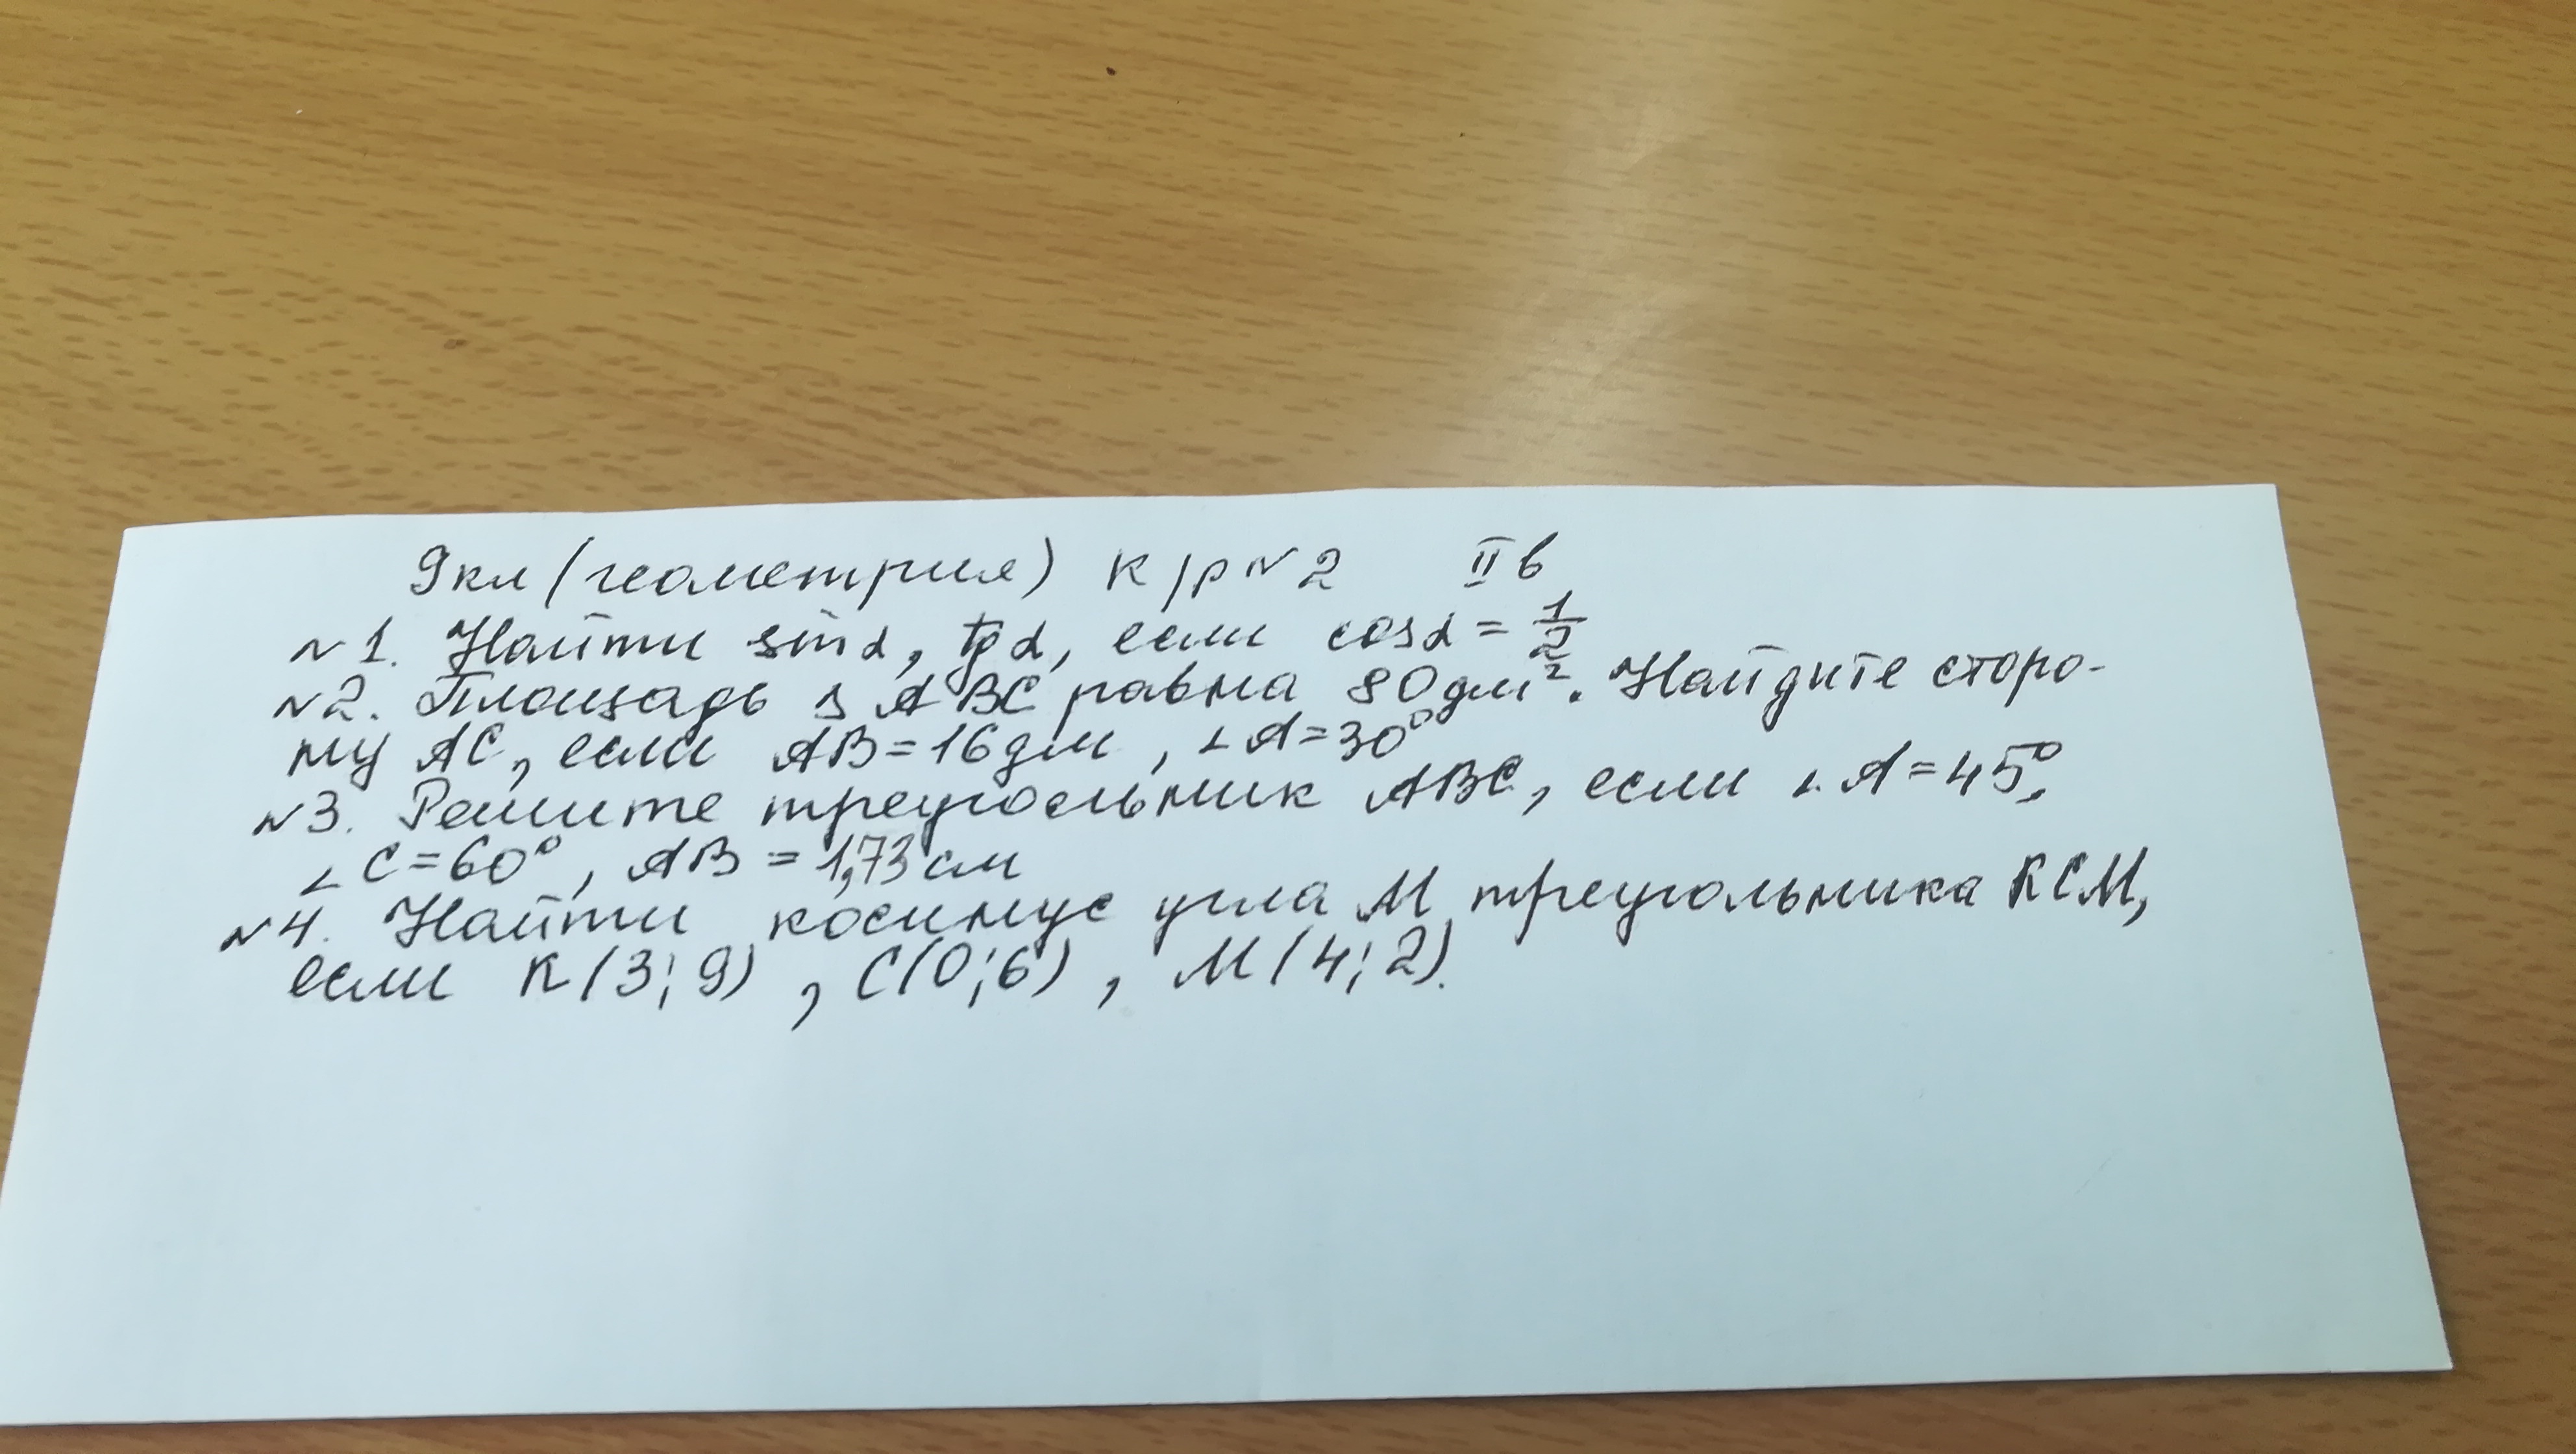 9кл (геометрия) к/р №2 II в
№1. Найти sin α, tg α, если cos α = 1/2
№2. Площадь △ ABC равна 80 дм². Найдите сторо-
ну AC, если AB = 16 дм, ∠A = 30°
№3. Решите треугольник ABC, если ∠A = 45°,
∠C = 60°, AB = 1,73 см
№4. Найти косинус угла M треугольника KCM,
если K(3;9), C(0;6), M(4;2).